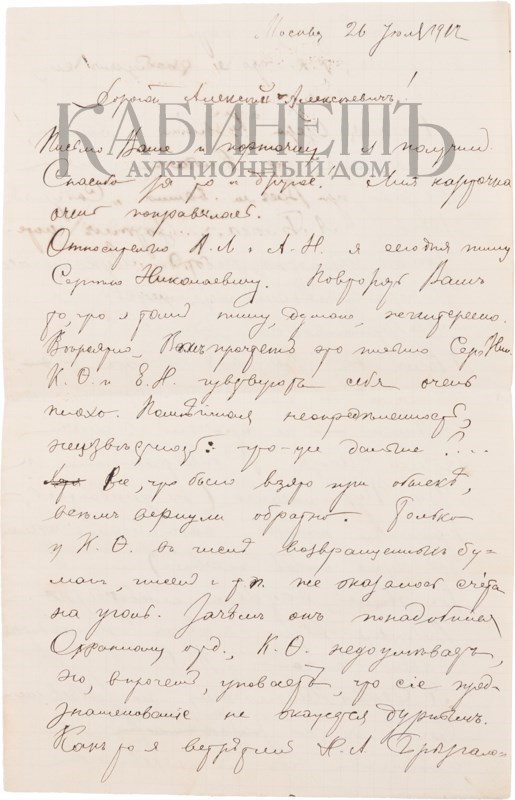 Москва 26 Июля 1912
Дорогой Алексей Алексеевич!
КАБИНЕТЪ
АУКЦИОННЫЙ ДОМ
Письмо Ваше и карточку я получил.
Спасибо за то и другое. Мне карточка
очень понравилась.
Относительно А. Л. и А. Н. я сегодня пишу
Сергею Николаевичу. Повторять Вамъ
то что я тамъ пишу, думаю, неинтересно.
Вѣроятно, Вамъ прочтетъ это письмо Серг. Ник.
К. Ѳ. и Е. Н. чувствуютъ себя очень
плохо. неопредѣленность,
неизвѣстность: что-же дальше?...
Все, что было взято при обыскѣ,
всѣмъ вернули обратно. Только
у К. Ѳ. въ числѣ возвращенныхъ бу-
магъ, писемъ и т. п. не оказалось счета
на уголь. Зачѣмъ онъ понадобился
Охранному отд., К. Ѳ. недоумѣваетъ,
но, впрочемъ, уповаетъ, что сіе пред-
знаменованіе не окажется дурнымъ.
Какъ то я встрѣтилъ А. Л.